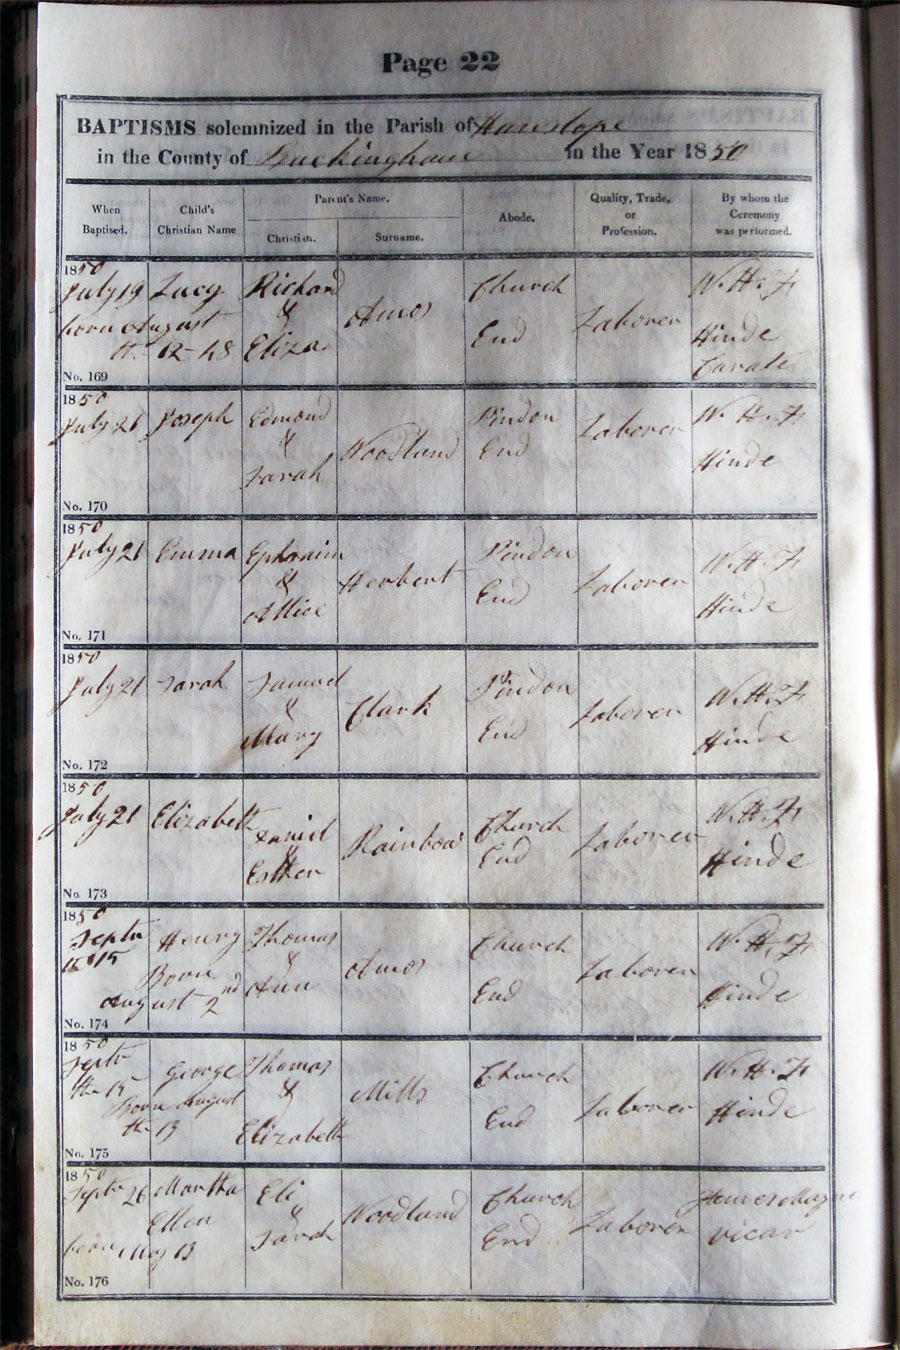 Page 22
BAPTISMS solemnized in the Parish of Hanslope
in the County of Buckingham in the Year 1850
When Baptised. Child's Christian Name Parent's Name. Christian. Surname. Abode. Quality, Trade, or Profession. By whom the Ceremony was performed.
1850
July 19 Lucy Richard & Eliza Amos Church End Laborer W. H. F. Hinde Curate
born August
th 12 - 48
No. 169
1850
July 21 Joseph Edmond & Sarah Woodland Pindon End Laborer W. H. F. Hinde
No. 170
1850
July 21 Emma Ephraim & Allice Herbert Pindon End Laborer W. H. F. Hinde
No. 171
1850
July 21 Sarah Samuel & Mary Clark Pindon End Laborer W. H. F. Hinde
No. 172
1850
July 21 Elizabeth Daniel & Esther Rainbow Church End Laborer W. H. F. Hinde
No. 173
1850
Septr th 15 Henry Thomas & Ann Amos Church End Laborer W. H. F. Hinde
Born
August 2nd
No. 174
1850
Septr th 15 George Thomas & Elizabeth Mills Church End Laborer W. H. F. Hinde
Born August
th 13
No. 175
1850
Septr 26 Martha Ellen Eli & Sarah Woodland Church End Laborer James Mayne vicar
born May 13
No. 176